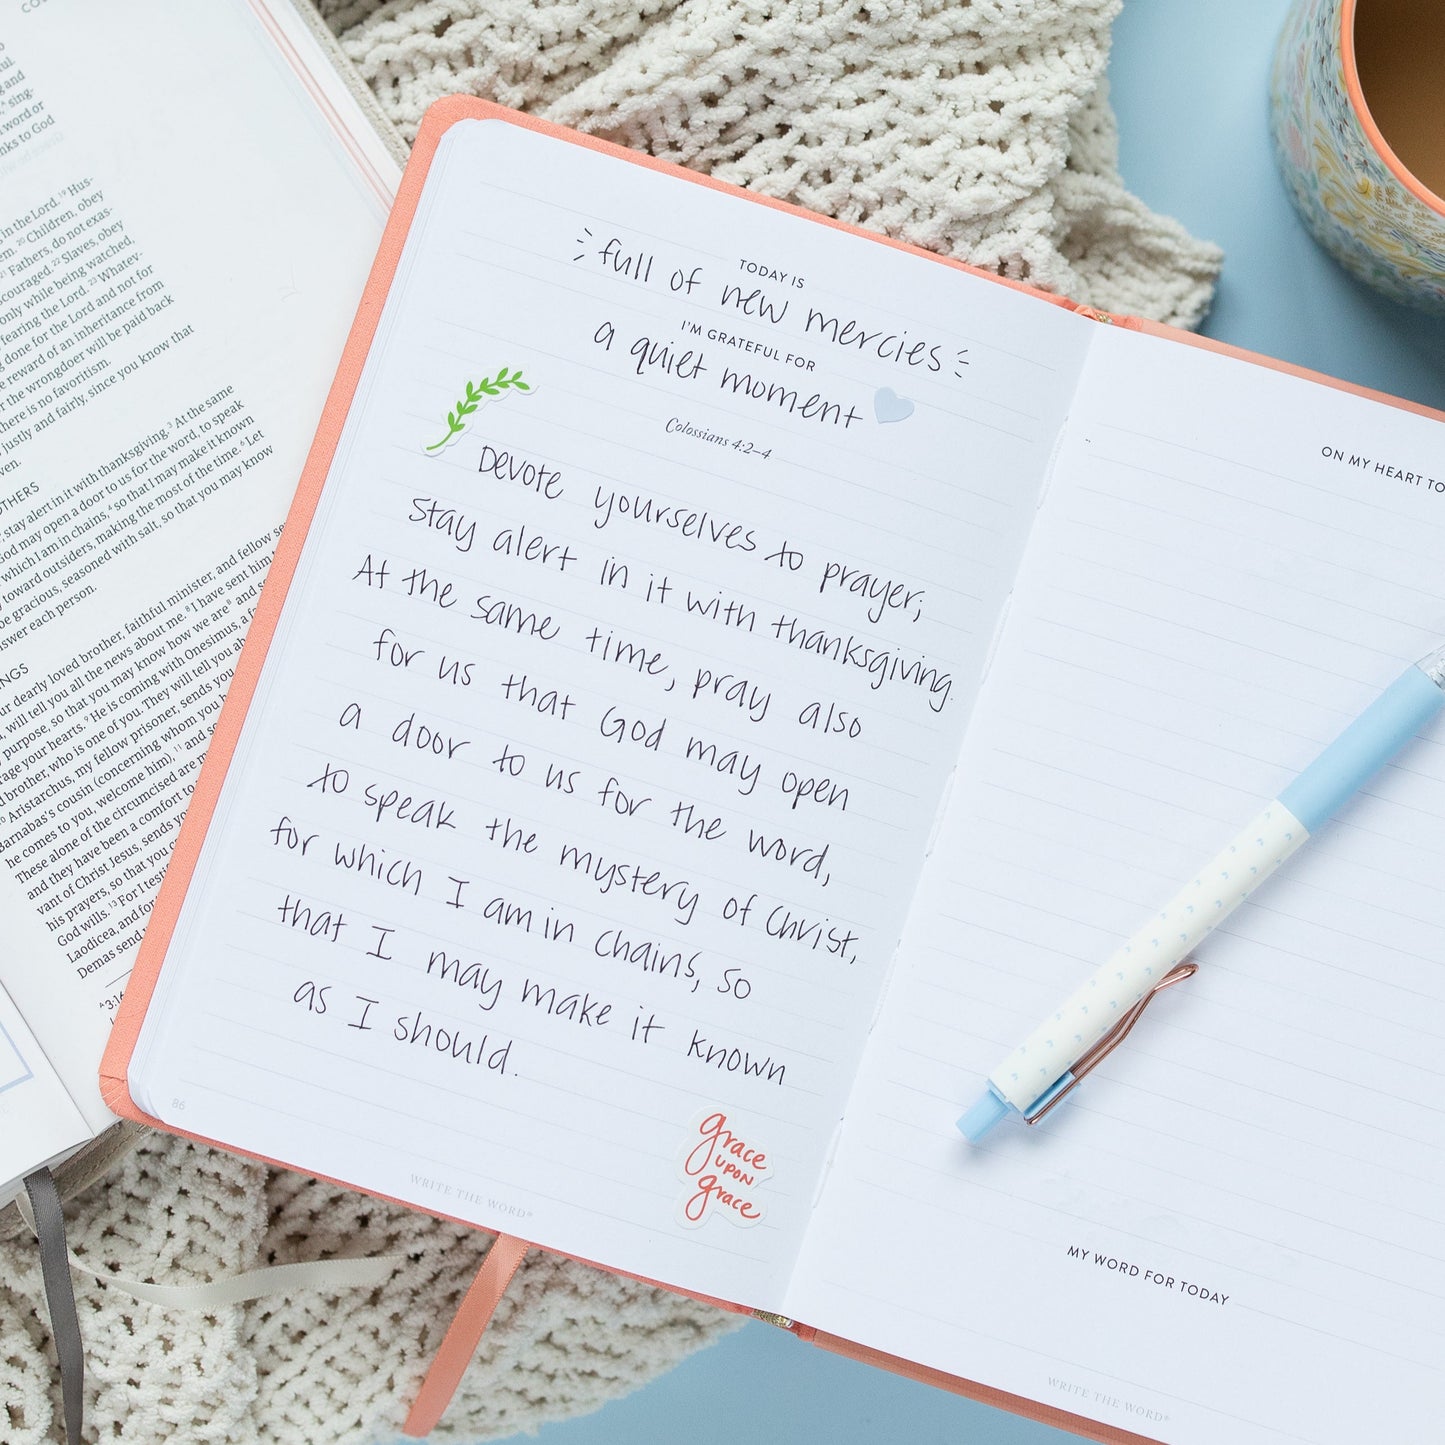 TODAY IS
full of new mercies
I'M GRATEFUL FOR
a quiet moment
Colossians 4:2–4
Devote yourselves to prayer;
stay alert in it with thanksgiving.
At the same time, pray also
for us that God may open
a door to us for the word,
to speak the mystery of Christ,
for which I am in chains, so
that I may make it known
as I should.
86
WRITE THE WORD®
grace
UPON
grace
ON MY HEART TO
MY WORD FOR TODAY
WRITE THE WORD®
sing
word or
nks to God
in the Lord. 19 Hus-
em. 20 Children, obey
21 Fathers, do not exas-
couraged. 22 Slaves, obey
only while being watched,
fearing the Lord. 23 Whatev-
done for the Lord and not for
e reward of an inheritance from
r the wrongdoer will be paid back
here is no favoritism.
justly and fairly, since you know that
ven.
THERS
; stay alert in it with thanksgiving. 3 At the same
God may open a door to us for the word, to speak
which I am in chains, 4 so that I may make it known
y toward outsiders, making the most of the time. 6 Let
be gracious, seasoned with salt, so that you may know
nswer each person.
NGS
ur dearly loved brother, faithful minister, and fellow se
, will tell you all the news about me. 8 I have sent him
purpose, so that you may know how we are 8 and so
rage your hearts. 9 He is coming with Onesimus, a fa
d brother, who is one of you. They will tell you ab
10 Aristarchus, my fellow prisoner, sends you
Barnabas's cousin (concerning whom you h
he comes to you, welcome him), 11 and so
These alone of the circumcised are m
and they have been a comfort to
vant of Christ Jesus, sends you
his prayers, so that you c
God wills. 13 For I testi
Laodicea, and for
Demas send
A 3:16